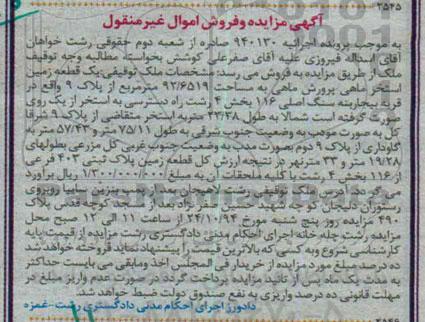 ۲۵۴۵
آگهی مزایده وفروش اموال غیرمنقول
به موجب پرونده اجرائیه ۹۴۰۱۳۰ صادره از شعبه دوم حقوقی رشت خواهان
آقای اسداله فیروزی علیه آقای صفرعلی کوشش بخواسته مطالبه وجه توقیف
ملک از طریق مزایده به فروش می رسد: مشخصات ملک توقیفی:یک قطعه زمین
استخر ماهی پرورش ماهی به مساحت ۹۳/۶۵۱۹ مترمربع از پلاک ۹ واقع در
قریه بیجاربنه سنگ اصلی ۱۱۶ بخش ۴ رشت راه دسترسی به استخر از یک روی
صورت گرفته است شمالا به طول ۳۳/۴۸ متربه استخر متقاضی از پلاک ۹ شرقا
کل به صورت مودب به وضعیت جنوب شرقی به طول ۷۵/۱۱ متر و ۵۷/۴۳ متر به
گاوداری از پلاک ۹ دوم بصورت مدب به وضعیت جنوب غربی کل مزرعی بطولهای
۱۹/۲۸ متر و ۳۳ مترنهر در نتیجه ارزش کل قطعه زمین پلاک ثبتی ۴۰۳ فرعی
از ۱۱۶ بخش ۴ رشت با کلیه ملحقات آن به مبلغ ۱/۳۰۰/۰۰۰/۰۰۰ ریال برآورد
می گردد. آدرس ملک توقیفی رشت لاهیجان بعد از پمپ بنزین سایپا روبروی
رستوران ذلیخان کوچه شهید حجت صفرنژاد بعد از مسجد کوچه قدس پلاک
۴۹۰ مزایده روز پنج شنبه مورخ ۲۴/۱۰/۹۴ از ساعت ۱۱ الی ۱۲ صبح محل
مزایده رشت جله خانه اجرای احکام مدنی دادگستری رشت مزایده از قیمت پایه
کارشناسی شروع وبه کسی که بالاترین قیمت را پیشنهاد نماید فروخته خواهد شد
ده درصد مبلغ مورد مزایده از خریدار فی المجلس اخذ ومابقی می بایست حداکثر
به مدت یک ماه پس از تائید مزایده پرداخت گردد در صورت عدم واریز مبلغ در
مهلت قانونی ده درصد واریزی به نفع صندوق دولت ضبط خواهد شد
دادورز اجرای احکام مدنی دادگستری رشت-غمزه